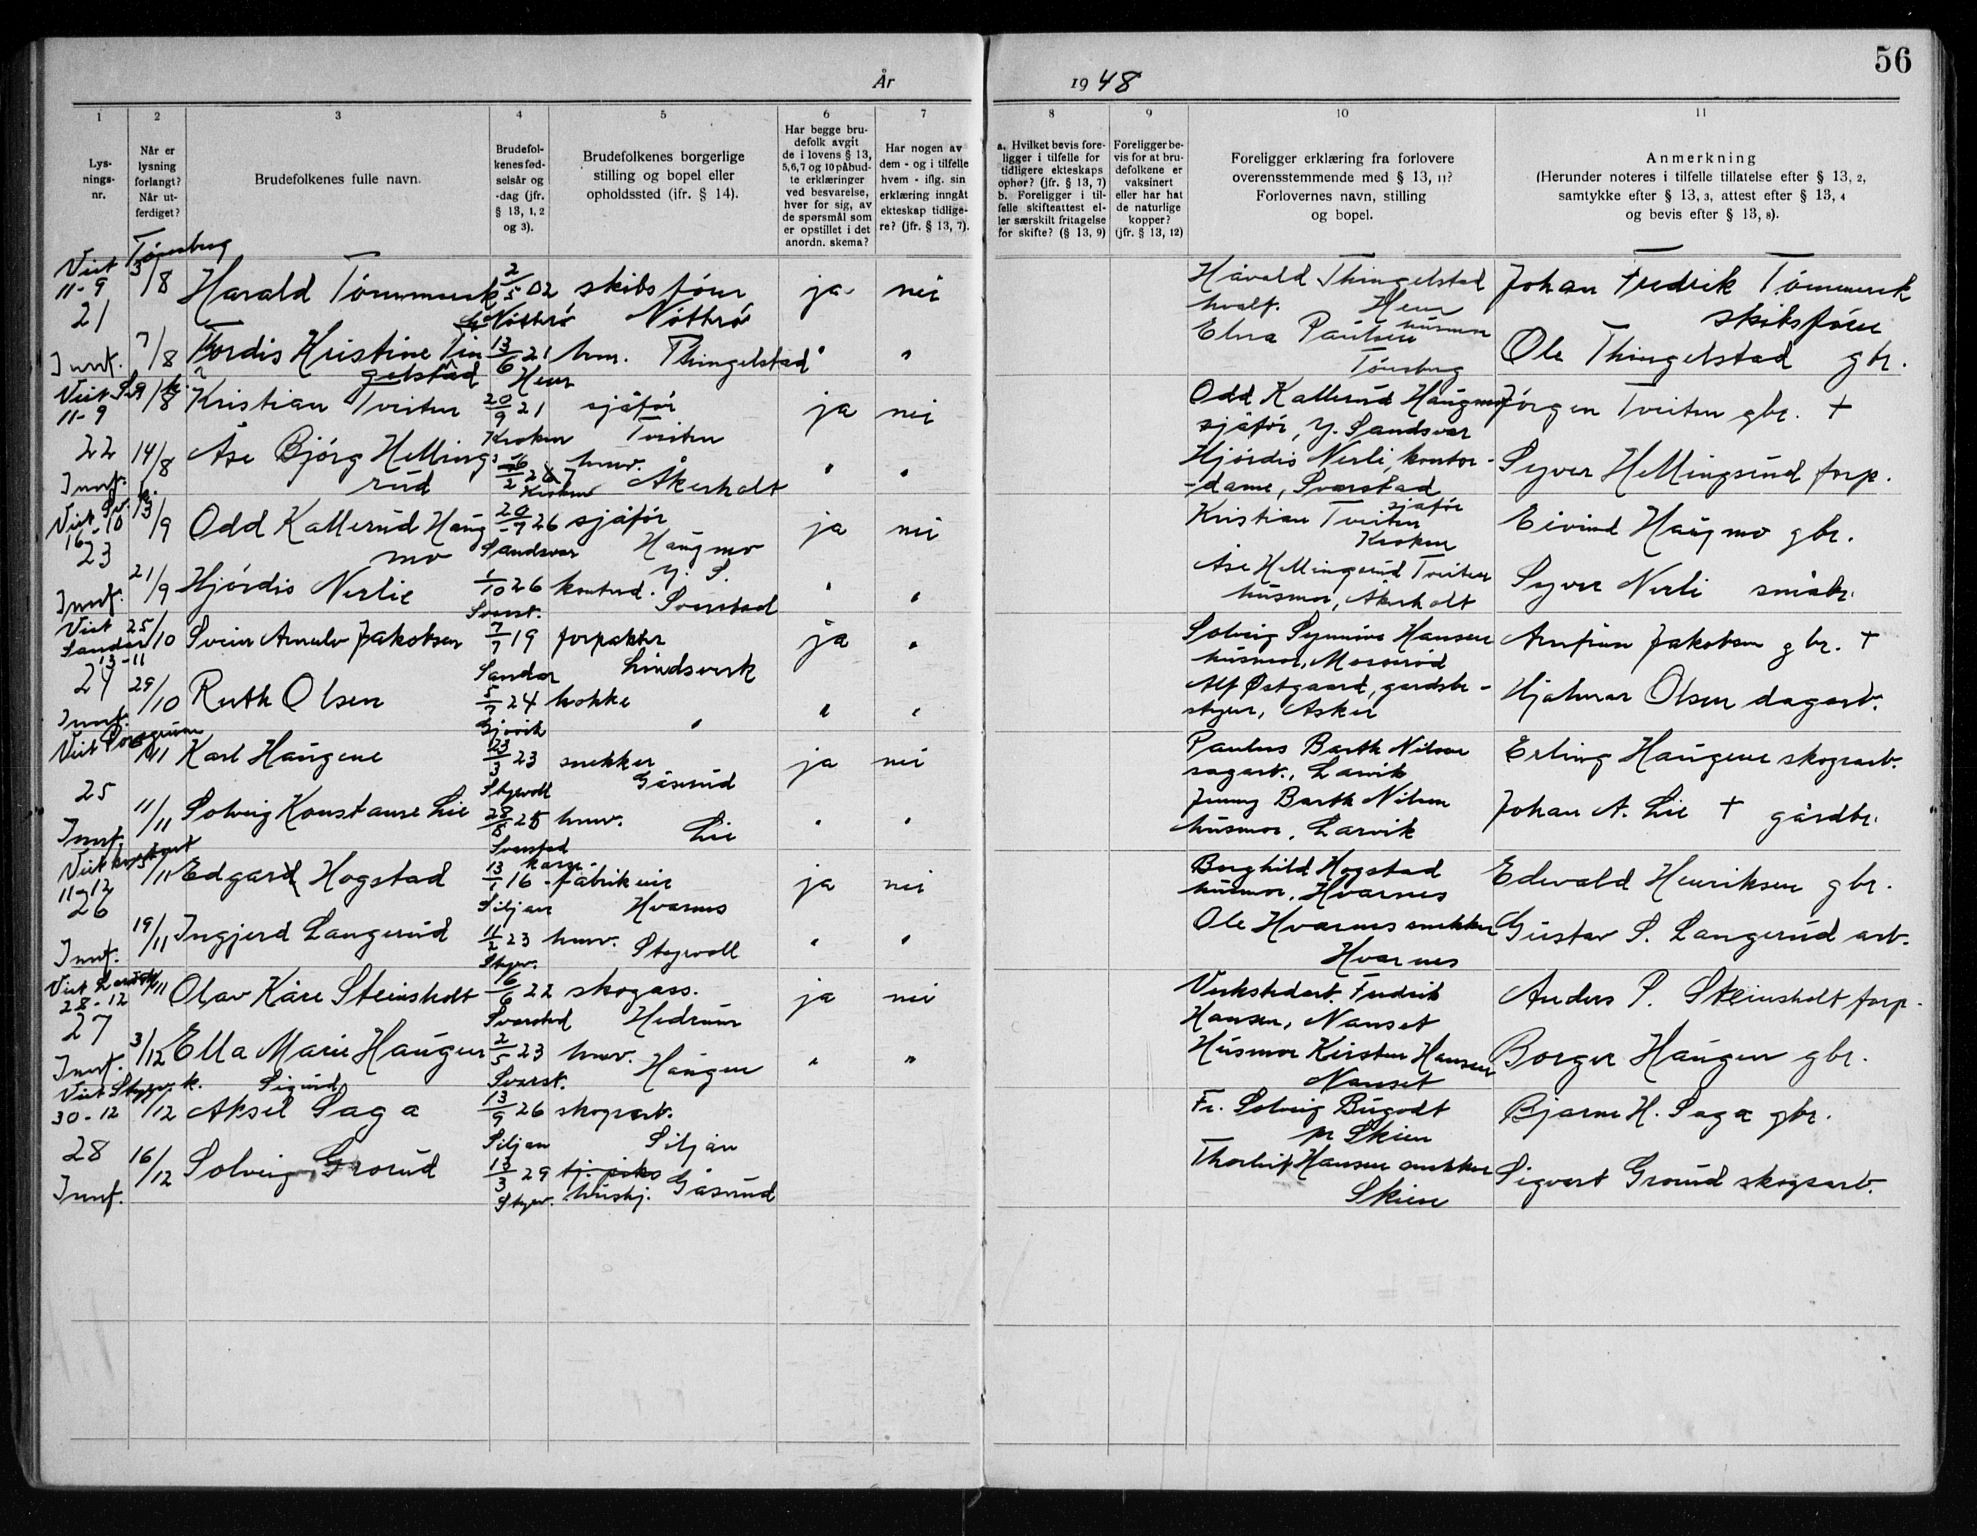 56
År 1948
1
Lys-
nings-
nr.
2
Når er
lysning
forlangt?
Når ut-
ferdiget?
3
Brudefolkenes fulle navn.
4
Brudefol-
kenes fød-
selsår og
-dag (jfr.
§ 13, 1, 2
og 3).
5
Brudefolkenes borgerlige
stilling og bopel eller
opholdssted (ifr. § 14).
6
Har begge bru-
defolk avgit
de i lovens § 13,
5,6,7 og 10 påbud-
te erklæringer
ved besvarelse,
hver for sig, av
de spørsmål som
er opstillet i det
anordn. skema?
7
Har nogen av
dem - og i tilfelle
hvem - iflg. sin
erklæring inngåt
ekteskap tidlige-
re? (jfr. § 13, 7).
8
a. Hvilket bevis fore-
ligger i tilfelle for
tidligere ekteskaps
ophør? (jfr. § 13, 7)
b. Foreligger i til-
felle skifteattest el-
ler særskilt fritagelse
for skifte? (§ 13, 9)
9
Foreligger be-
vis for at bru-
defolkene er
vaksinert
eller har hat
de naturlige
kopper?
(jfr. § 13, 12)
10
Foreligger erklæring fra forlovere
overensstemmende med § 13, 11?
Forlovernes navn, stilling
og bopel.
11
Anmerkning
(Herunder noteres i tilfelle tillatelse efter § 13, 2,
samtykke efter § 13, 3, attest efter § 13, 4
og bevis efter § 13, 8).
Viet Tønsberg
11-9 3/8 Harald Tømmerk 2/5 02 skibsfører ja nei Håvald Thingelstad Johan Fredrik Tømmerk
21 Nøtterø Nøtterø hvalf. Heum skibsfører
7/8 Tordis Kristine Tin 13/6 21 hm. Thingelstad " " Elna Paulsen husmor Ole Thingelstad gbr.
Innf. gelstad Heum Tønsberg
Viet Sv. k. 9/8 Kristian Tveiten 20/9 21 sjåfør ja nei Odd Kallerud Haugmo Jørgen Tveiten gbr. +
11-9 Kroken Tveiten sjåfør, Y. Sandsvær
22 14/8 Åse Bjørg Helling- hmv. " " Hjørdis Nerli, kontor- Syver Hellingsrud forp.
Innf. rud Kroken Åkerholt -dame, Svarstad
Viet Sv. k. 13/9 Odd Kallerud Haug 20/7 26 sjåfør ja nei Kristian Tveiten sjåfør Eivind Haugmo gbr.
16-10 mo Sandsvær Haugmo Kroken
23 Y. S.
21/9 Hjørdis Nerlie 1/10 26 kontord. " " Åse Hellingsrud Tveiten Syver Nerli småbr.
Innf. Svarst. Svarstad husmor, Åkerholt
Viet Sandar 25/10 Svein Arnulv Jakobsen 7/7 19 forpakter ja " Solveig Synnøve Hansen Arnfinn Jakobsen gbr. +
13-11 Sandar Lindsverk husmor,
24 29/10 Ruth Olsen 5/7 24 kokke " " Alf Østgaard, gårdsbe- Hjalmar Olsen dagarb.
Innf. Gjøvik " styrer, Asker
Viet Porsgrunn /11 Karl Haugene 23/3 23 snekker ja nei Paulus Barth Nilsen Erling Haugene skogsarb.
25 Styrvoll Gåsrud sagarb., Larvik
11/11 Solveig Konstanse Lie 28/8 25 hmv. " " Jenny Barth Nilsen Johan A. Lie + gårdbr.
Innf. Svarstad Lie husmor, Larvik
Viet 5/11 Edgard Hogstad 13/1 16 fabrikeier ja nei Borghild Hogstad Edvald Henriksen gbr.
11-12 Siljan Hvarnes husmor, Hvarnes
26 19/11 Ingjerd Langerud 11/2 23 hmv. " " Ole Hvarnes snekker Gustav S. Langerud arb.
Innf. Styrv. Styrvoll Hvarnes
Viet Larvik /11 Olav Kåre Steinsholt 16/6 22 skogass. ja nei Verkstedarb. Fredrik Anders P. Steinsholt forp.
28-12 Svarstad Hedrum Hansen, Nanset
27 3/12 Ella Marie Haugen 2/5 23 hmv. " " Husmor Kirsten Hansen Borger Haugen gbr.
Innf. Svarst. Haugen Nanset
Viet Styrv. k. Sigurd
30-12 /12 Aksel Saga 13/9 26 skogsarb. Fr. Solveig Bugodt Bjarne H. Saga gbr.
Siljan Siljan pr Skien
28 16/12 Solveig Grorud 13/3 29 Thorleif Hansen snekker Sigvart Grorud skogsarb.
Innf. Styrv. hushj. Gåsrud Skien